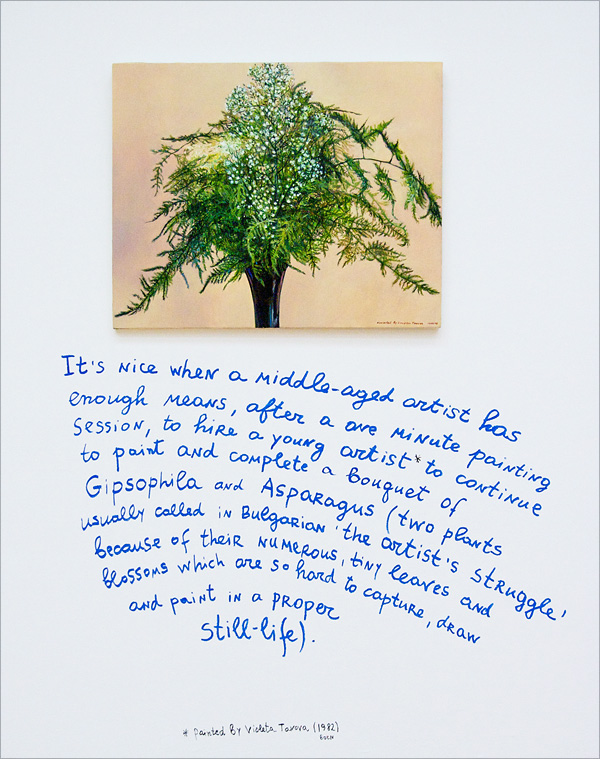 It's nice when a middle-aged artist has
enough means, after a one minute painting
session, to hire a young artist* to continue
to paint and complete a bouquet of
Gipsophila and Asparagus (two plants
usually called in Bulgarian 'the artist's struggle'
because of their numerous, tiny leaves and
blossoms which are so hard to capture, draw
and paint in a proper
still-life).
* painted By Violeta Tanova (1982)
BORN